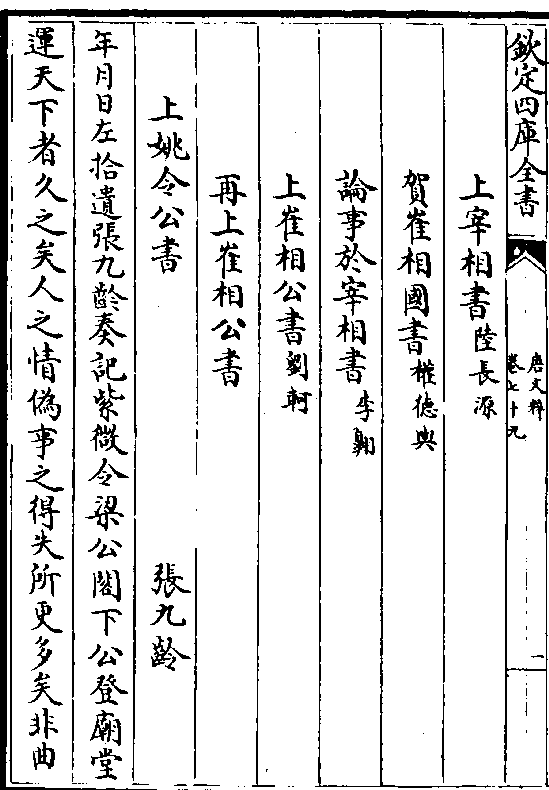 欽定四庫全書
唐文粹
卷七十九
一
上宰相書陸長源
賀崔相國書權德輿
論事於宰相書李翺
上崔相公書劉軻
再上崔相公書
上姚令公書　張九齡
年月日左拾遺張九齡奏記紫微令梁公閣下公登廟堂
運天下者久之矣人之情偽事之得失所更多矣非曲